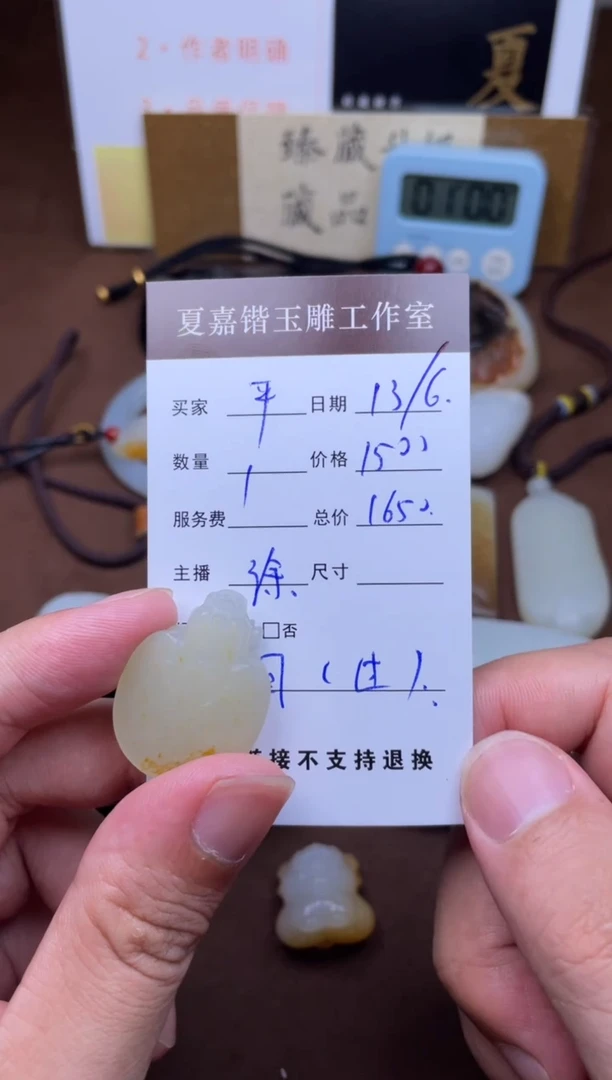 2·作者明确
夏
臻藏
藏品
01:00
夏嘉锴玉雕工作室
买家 平 日期 13/6.
数量 1 价格 1500
服务费 总价 1650.
主播 徐. 尺寸
□否
(生).
接不支持退换